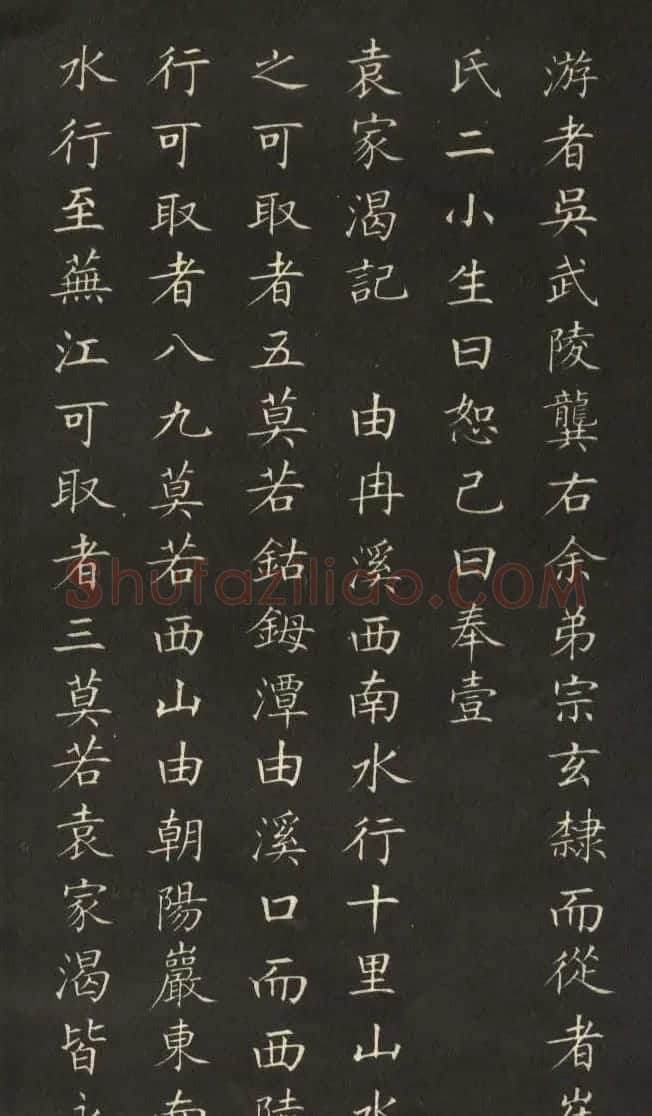 游者吳武陵龔右余弟宗玄隸而從者崔
氏二小生曰恕己曰奉壹
袁家渴記 由冉溪西南水行十里山水
之可取者五莫若鈷鉧潭由溪口而西陸
行可取者八九莫若西山由朝陽巖東南
水行至蕪江可取者三莫若袁家渴皆永
Shufaziliao.COM